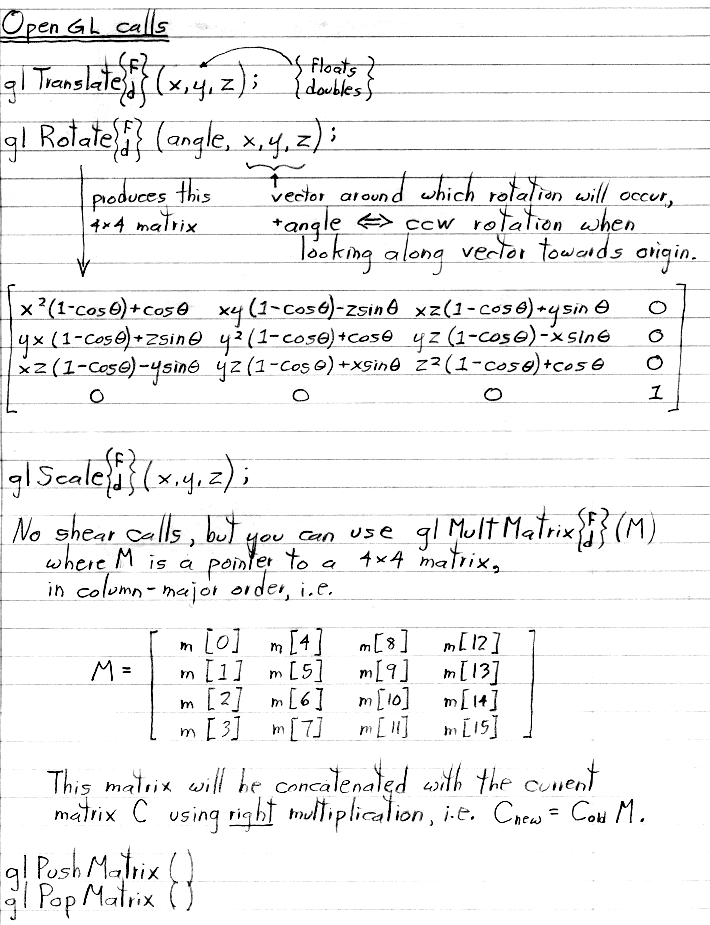 OpenGL calls
glTranslate{f d}(x,y,z); {floats doubles}
glRotate{f d}(angle, x,y,z);
produces this 4×4 matrix
vector around which rotation will occur,
+angle ⇔ ccw rotation when
looking along vector towards origin.
x²(1-cosθ)+cosθ xy(1-cosθ)-zsinθ xz(1-cosθ)+ysinθ 0
yx(1-cosθ)+zsinθ y²(1-cosθ)+cosθ yz(1-cosθ)-xsinθ 0
xz(1-cosθ)-ysinθ yz(1-cosθ)+xsinθ z²(1-cosθ)+cosθ 0
0 0 0 1
glScale{f d}(x,y,z);
No shear calls, but you can use glMultMatrix{f d}(M)
where M is a pointer to a 4×4 matrix,
in column-major order, i.e.
m[0] m[4] m[8] m[12]
M = m[1] m[5] m[9] m[13]
m[2] m[6] m[10] m[14]
m[3] m[7] m[11] m[15]
This matrix will be concatenated with the current
matrix C using right multiplication, i.e. Cnew = Cold M.
glPushMatrix()
glPopMatrix()